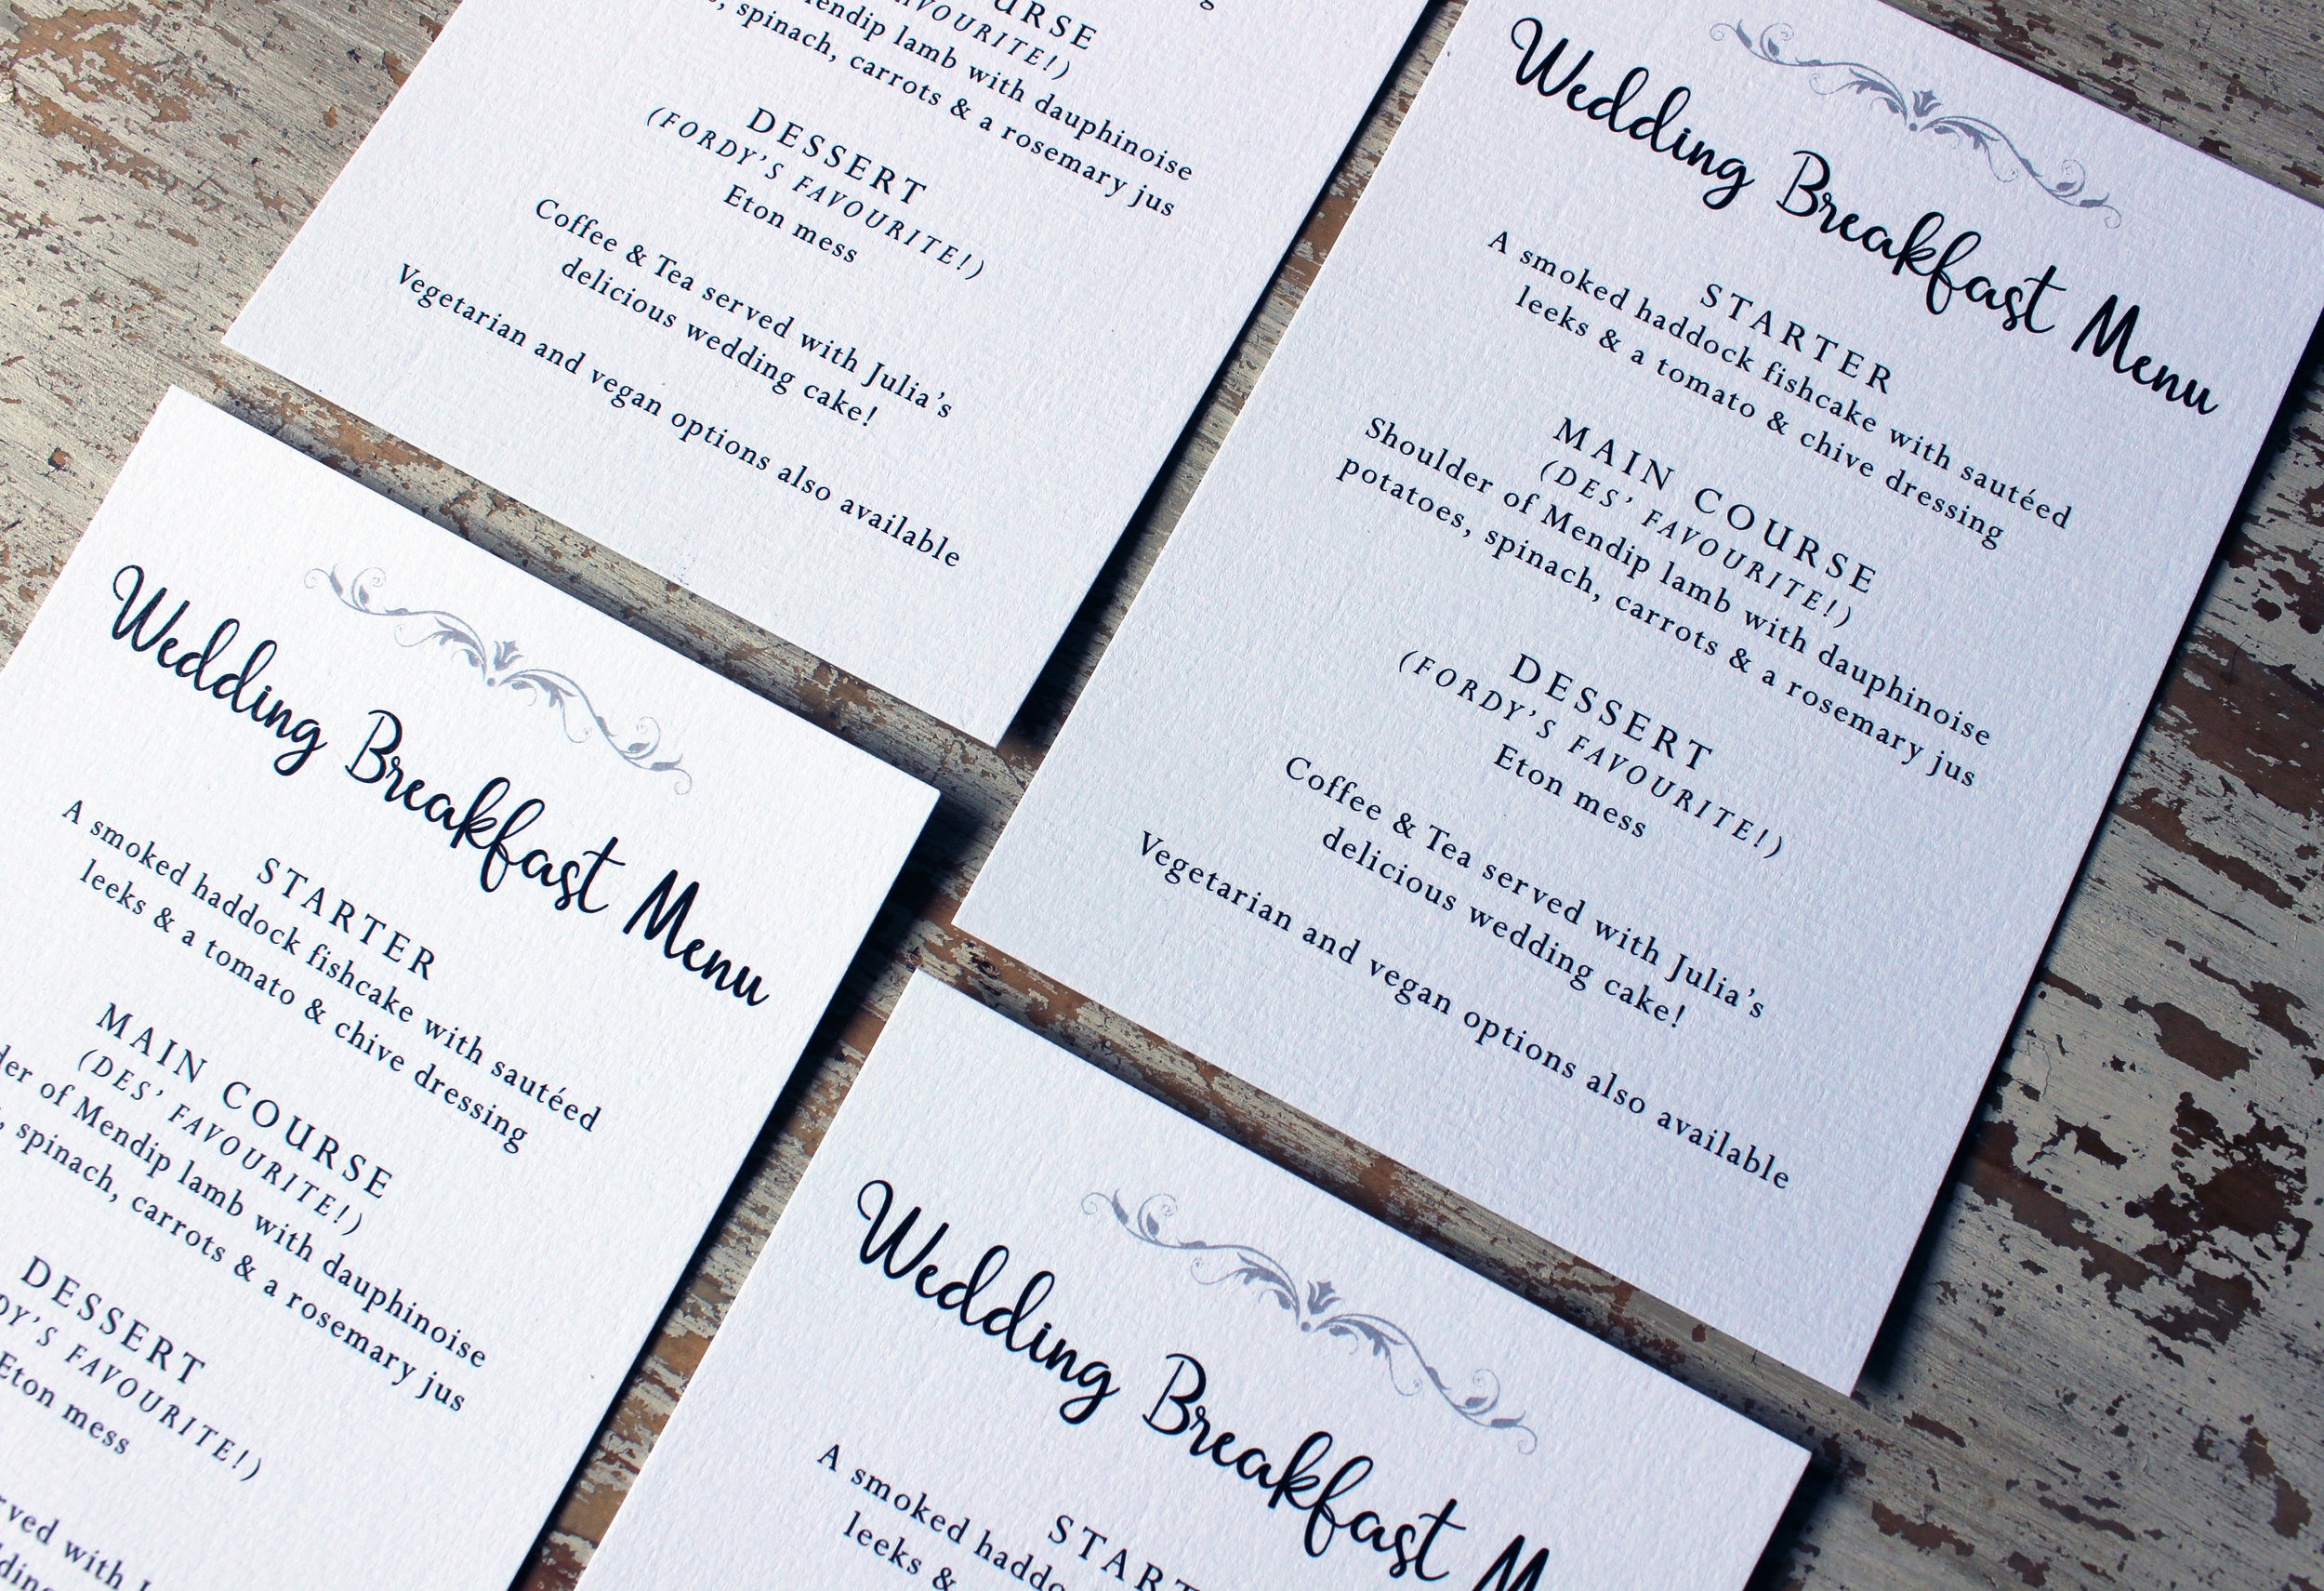 COURSE
FAVOURITE!)
lamb with dauphinoise
spinach, carrots & a rosemary jus
DESSERT
(FORDY'S FAVOURITE!)
Eton mess
Coffee & Tea served with Julia's
delicious wedding cake!
Vegetarian and vegan options also available
Wedding Breakfast Menu
STARTER
A smoked haddock fishcake with sautéed
leeks & a tomato & chive dressing
MAIN COURSE
(DES' FAVOURITE!)
Shoulder of Mendip lamb with dauphinoise
potatoes, spinach, carrots & a rosemary jus
DESSERT
(FORDY'S FAVOURITE!)
Eton mess
Coffee & Tea served with Julia's
delicious wedding cake!
Vegetarian and vegan options also available
Wedding Breakfast Menu
STARTER
A smoked haddock fishcake with sautéed
leeks & a tomato & chive dressing
MAIN COURSE
(DES' FAVOURITE!)
of Mendip lamb with dauphinoise
spinach, carrots & a rosemary jus
DESSERT
FAVOURITE!)
Eton mess
with
Wedding Breakfast
A smoked
leeks &